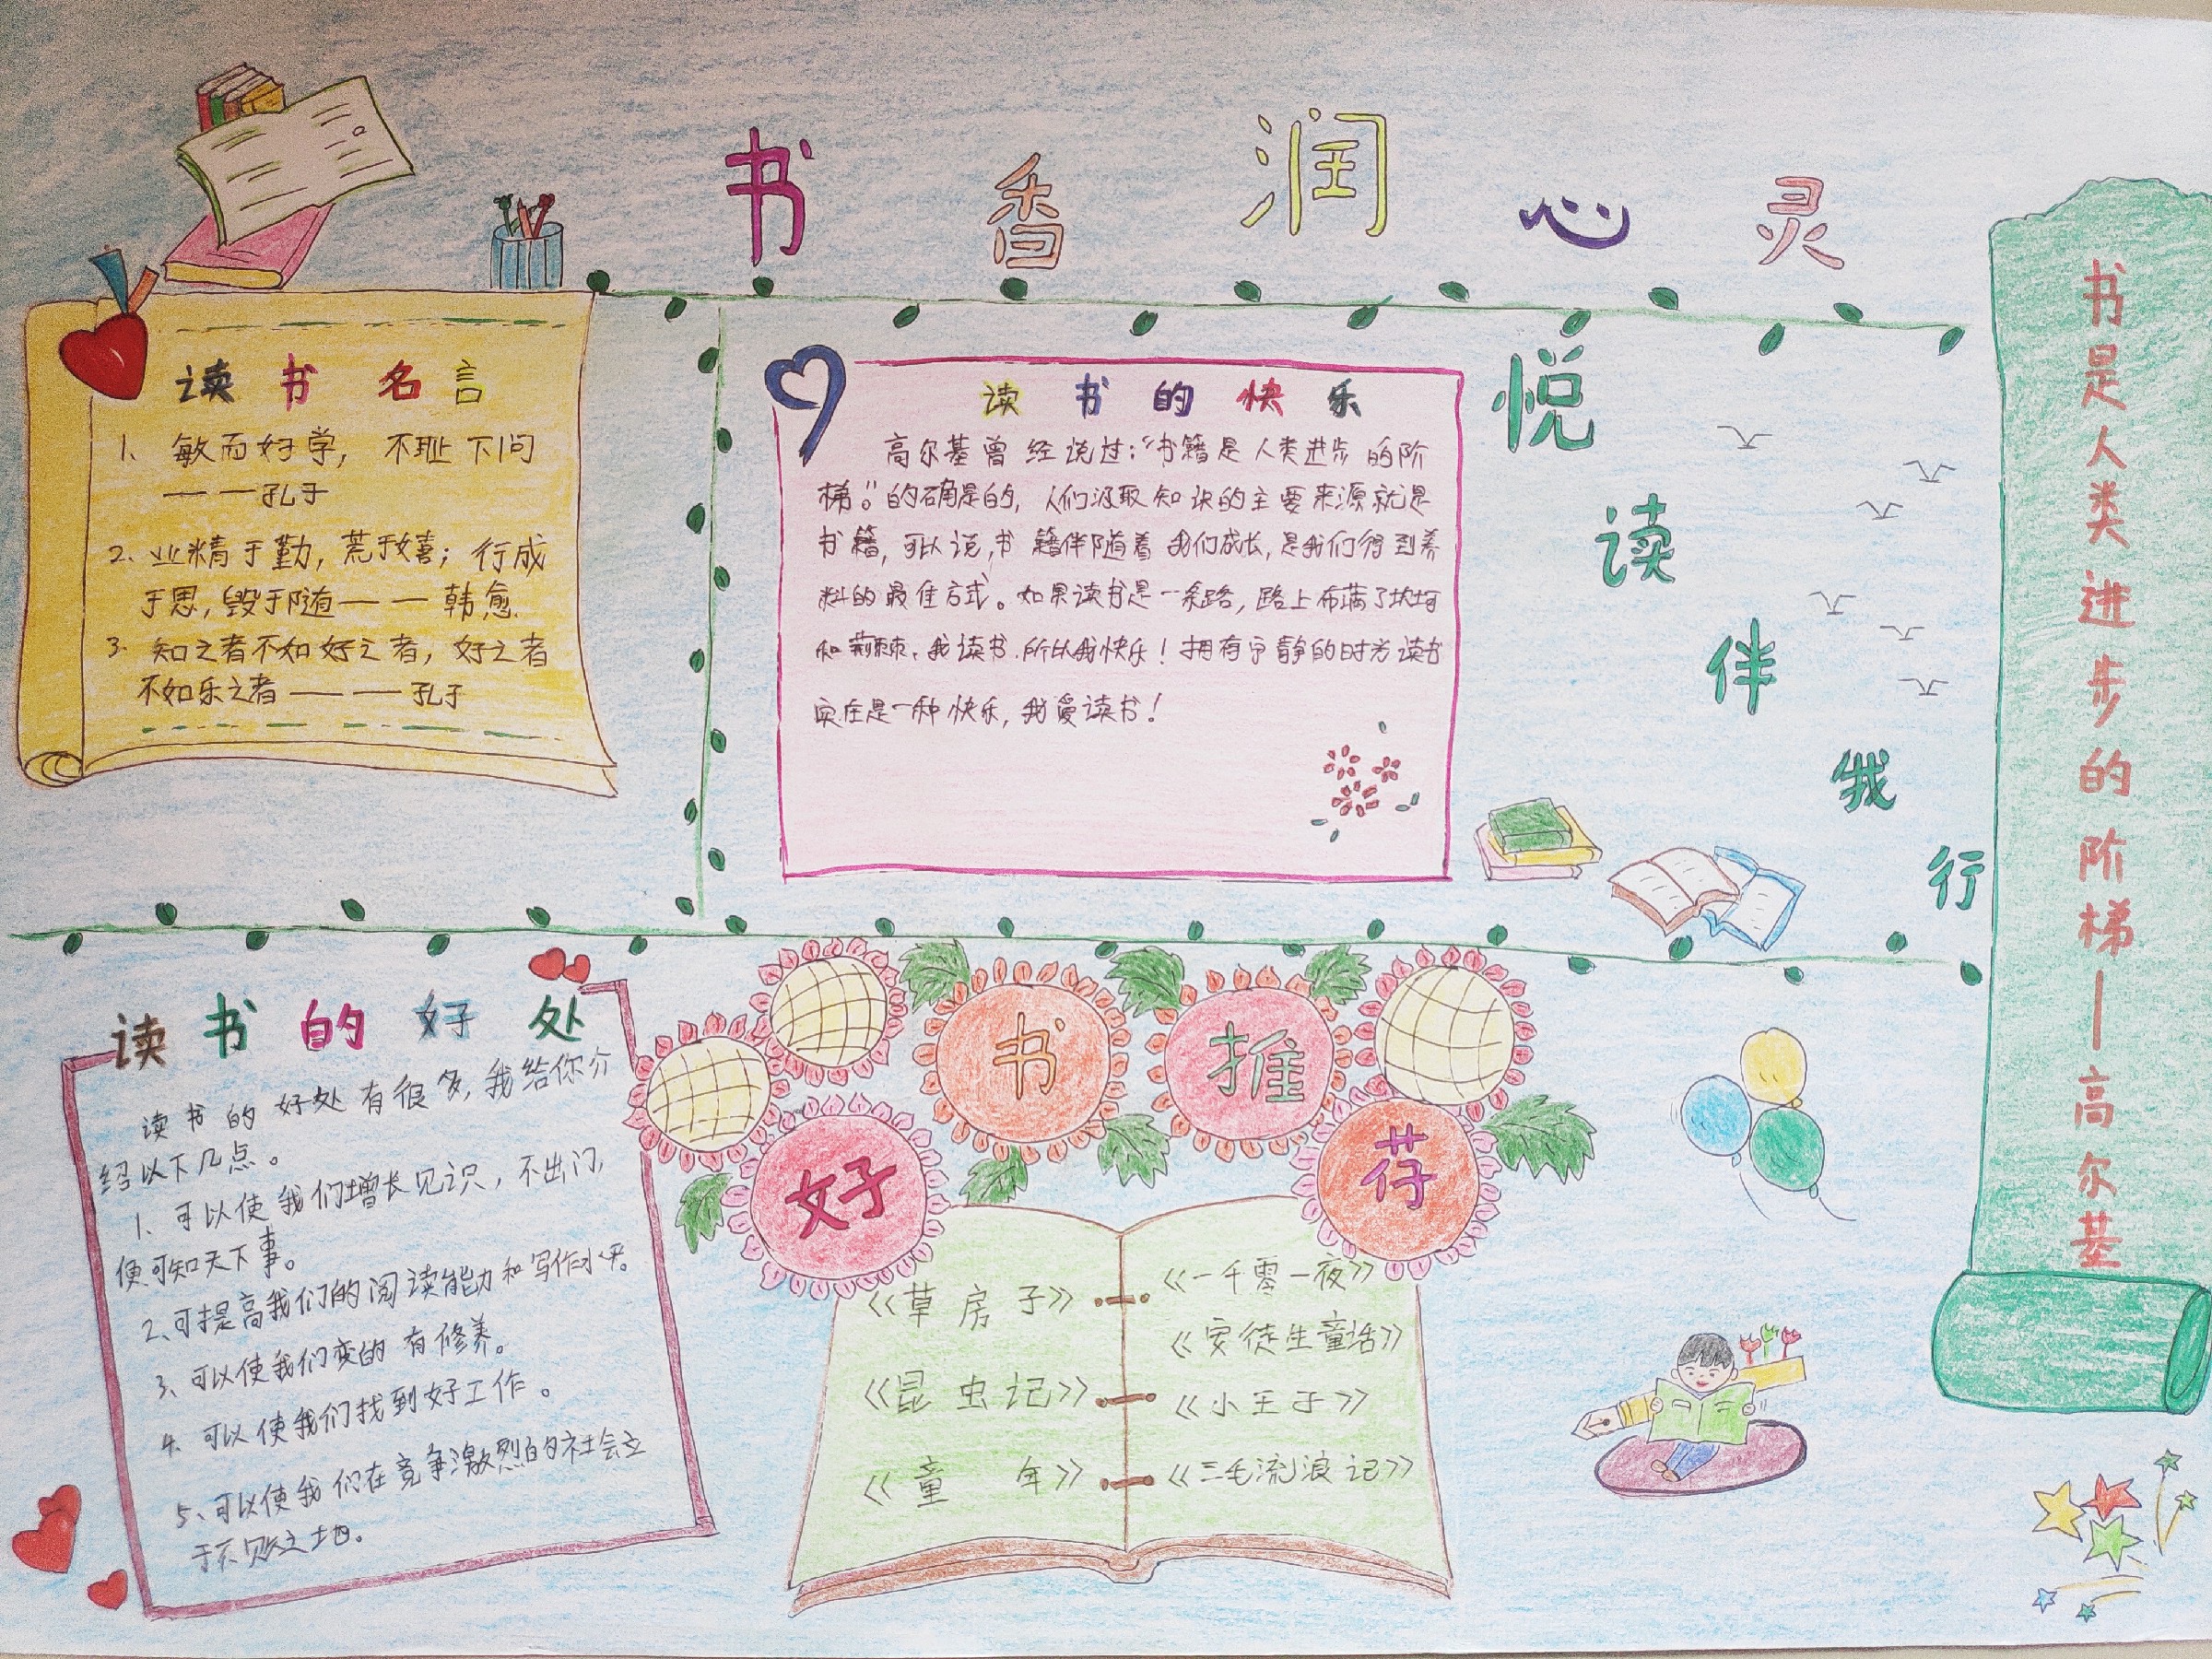 书香润心灵
读书名言
1、敏而好学，不耻下问
——孔子
2、业精于勤，荒于嬉；行成
于思，毁于随——韩愈
3、知之者不如好之者，好之者
不如乐之者——孔子
读书的快乐
高尔基曾经说过：“书籍是人类进步的阶
梯。”的确是的，人们汲取知识的主要来源就是
书籍，可以说，书籍伴随着我们成长，是我们得到养
料的最佳方式。如果读书是一条路，路上布满了坎坷
和荆棘，我读书，所以我快乐！拥有宁静的时光读书
实在是一种快乐，我爱读书！
悦读伴我行
书是人类进步的阶梯—高尔基
读书的好处
读书的好处有很多，我给你介
绍以下几点。
1、可以使我们增长见识，不出门，
便可知天下事。
2、可提高我们的阅读能力和写作水平。
3、可以使我们变的有修养。
4、可以使我们找到好工作。
5、可以使我们在竞争激烈的社会立
于不败之地。
好书推荐
《草房子》
《昆虫记》
《童年》
《一千零一夜》
《安徒生童话》
《小王子》
《三毛流浪记》